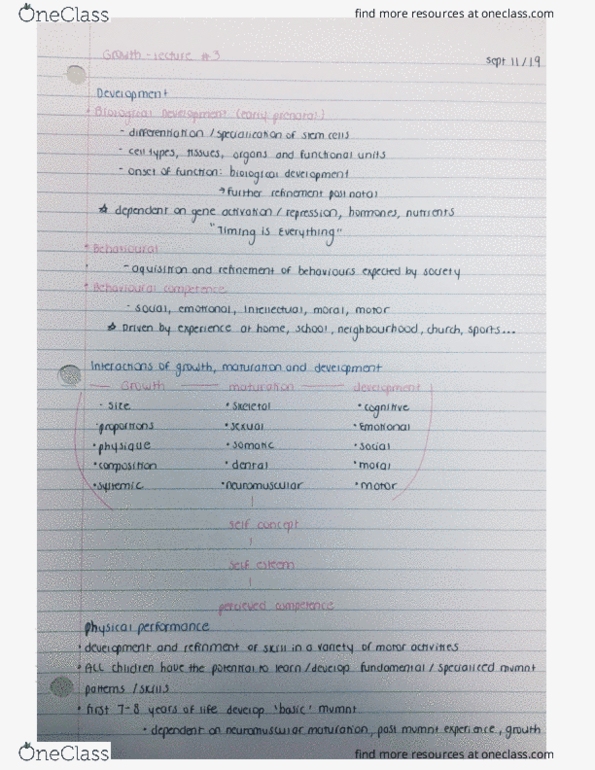 OneClass
find more resources at oneclass.com
Growth - lecture #3
sept 11/19
Development
• Biological Development (early prenatal)
- differentiation / specialization of stem cells
- cell types, tissues, organs and functional units
- onset of function: biological development
→ further refinement post natal
☆ dependent on gene activation / repression, hormones, nutrients
"Timing is Everything"
• Behavioural
- aquisition and refinement of behaviours expected by society
• Behavioural competence
- social, emotional, intellectual, moral, motor
☆ Driven by experience at home, school, neighbourhood, church, sports...
Interactions of growth, maturation and development
Growth maturation development
• size • skeletal • cognitive
• proportions • sexual • Emotional
• physique • somatic • social
• composition • dental • moral
• systemic • neuromuscular • motor
self concept
self esteem
percieved competence
physical performance
• development and refinment of skill in a variety of motor activities
• ALL children have the potential to learn/develop fundamental / specialized mvmnt
patterns / skills
• first 7-8 years of life develop 'basic' mvmnt
• dependent on neuromuscular maturation, past mvmnt experience, growth
OneClass
find more resources at oneclass.com